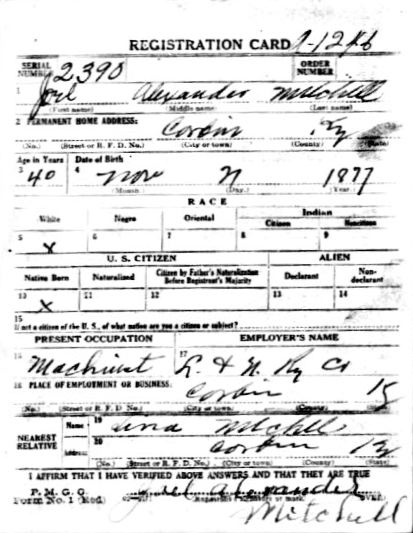 REGISTRATION CARD
SERIAL NUMBER 2390 ORDER NUMBER
1 Joel Alexander Mitchell
(First name) (Middle name) (Last name)
2 PERMANENT HOME ADDRESS:
Corbin Ky
(No.) (Street or R. F. D. No.) (City or town) (County) (State)
Age in Years Date of Birth
3 40 4 Nov 1877
(Month.) (Day.) (Year.)
RACE
White Negro Oriental Indian
Citizen Noncitizen
5 X 6 7 8 9
U. S. CITIZEN ALIEN
Native Born Naturalized Citizen by Father's Naturalization Before Registrant's Majority Declarant Non-declarant
10 X 11 12 13 14
15
If not a citizen of the U. S., of what nation are you a citizen or subject?
PRESENT OCCUPATION EMPLOYER'S NAME
16 Machinist 17 L. & N. Ry Co
18 PLACE OF EMPLOYMENT OR BUSINESS:
Corbin Ky
(No.) (Street or R. F. D. No.) (City or town) (County) (State)
NEAREST RELATIVE Name 19 Mitchell
Address 20 Corbin Ky
(No.) (Street or R. F. D. No.) (City or town) (County) (State)
I AFFIRM THAT I HAVE VERIFIED ABOVE ANSWERS AND THAT THEY ARE TRUE
P. M. G. O.
Form No. 1 (Red) Joel Alexander
Mitchell